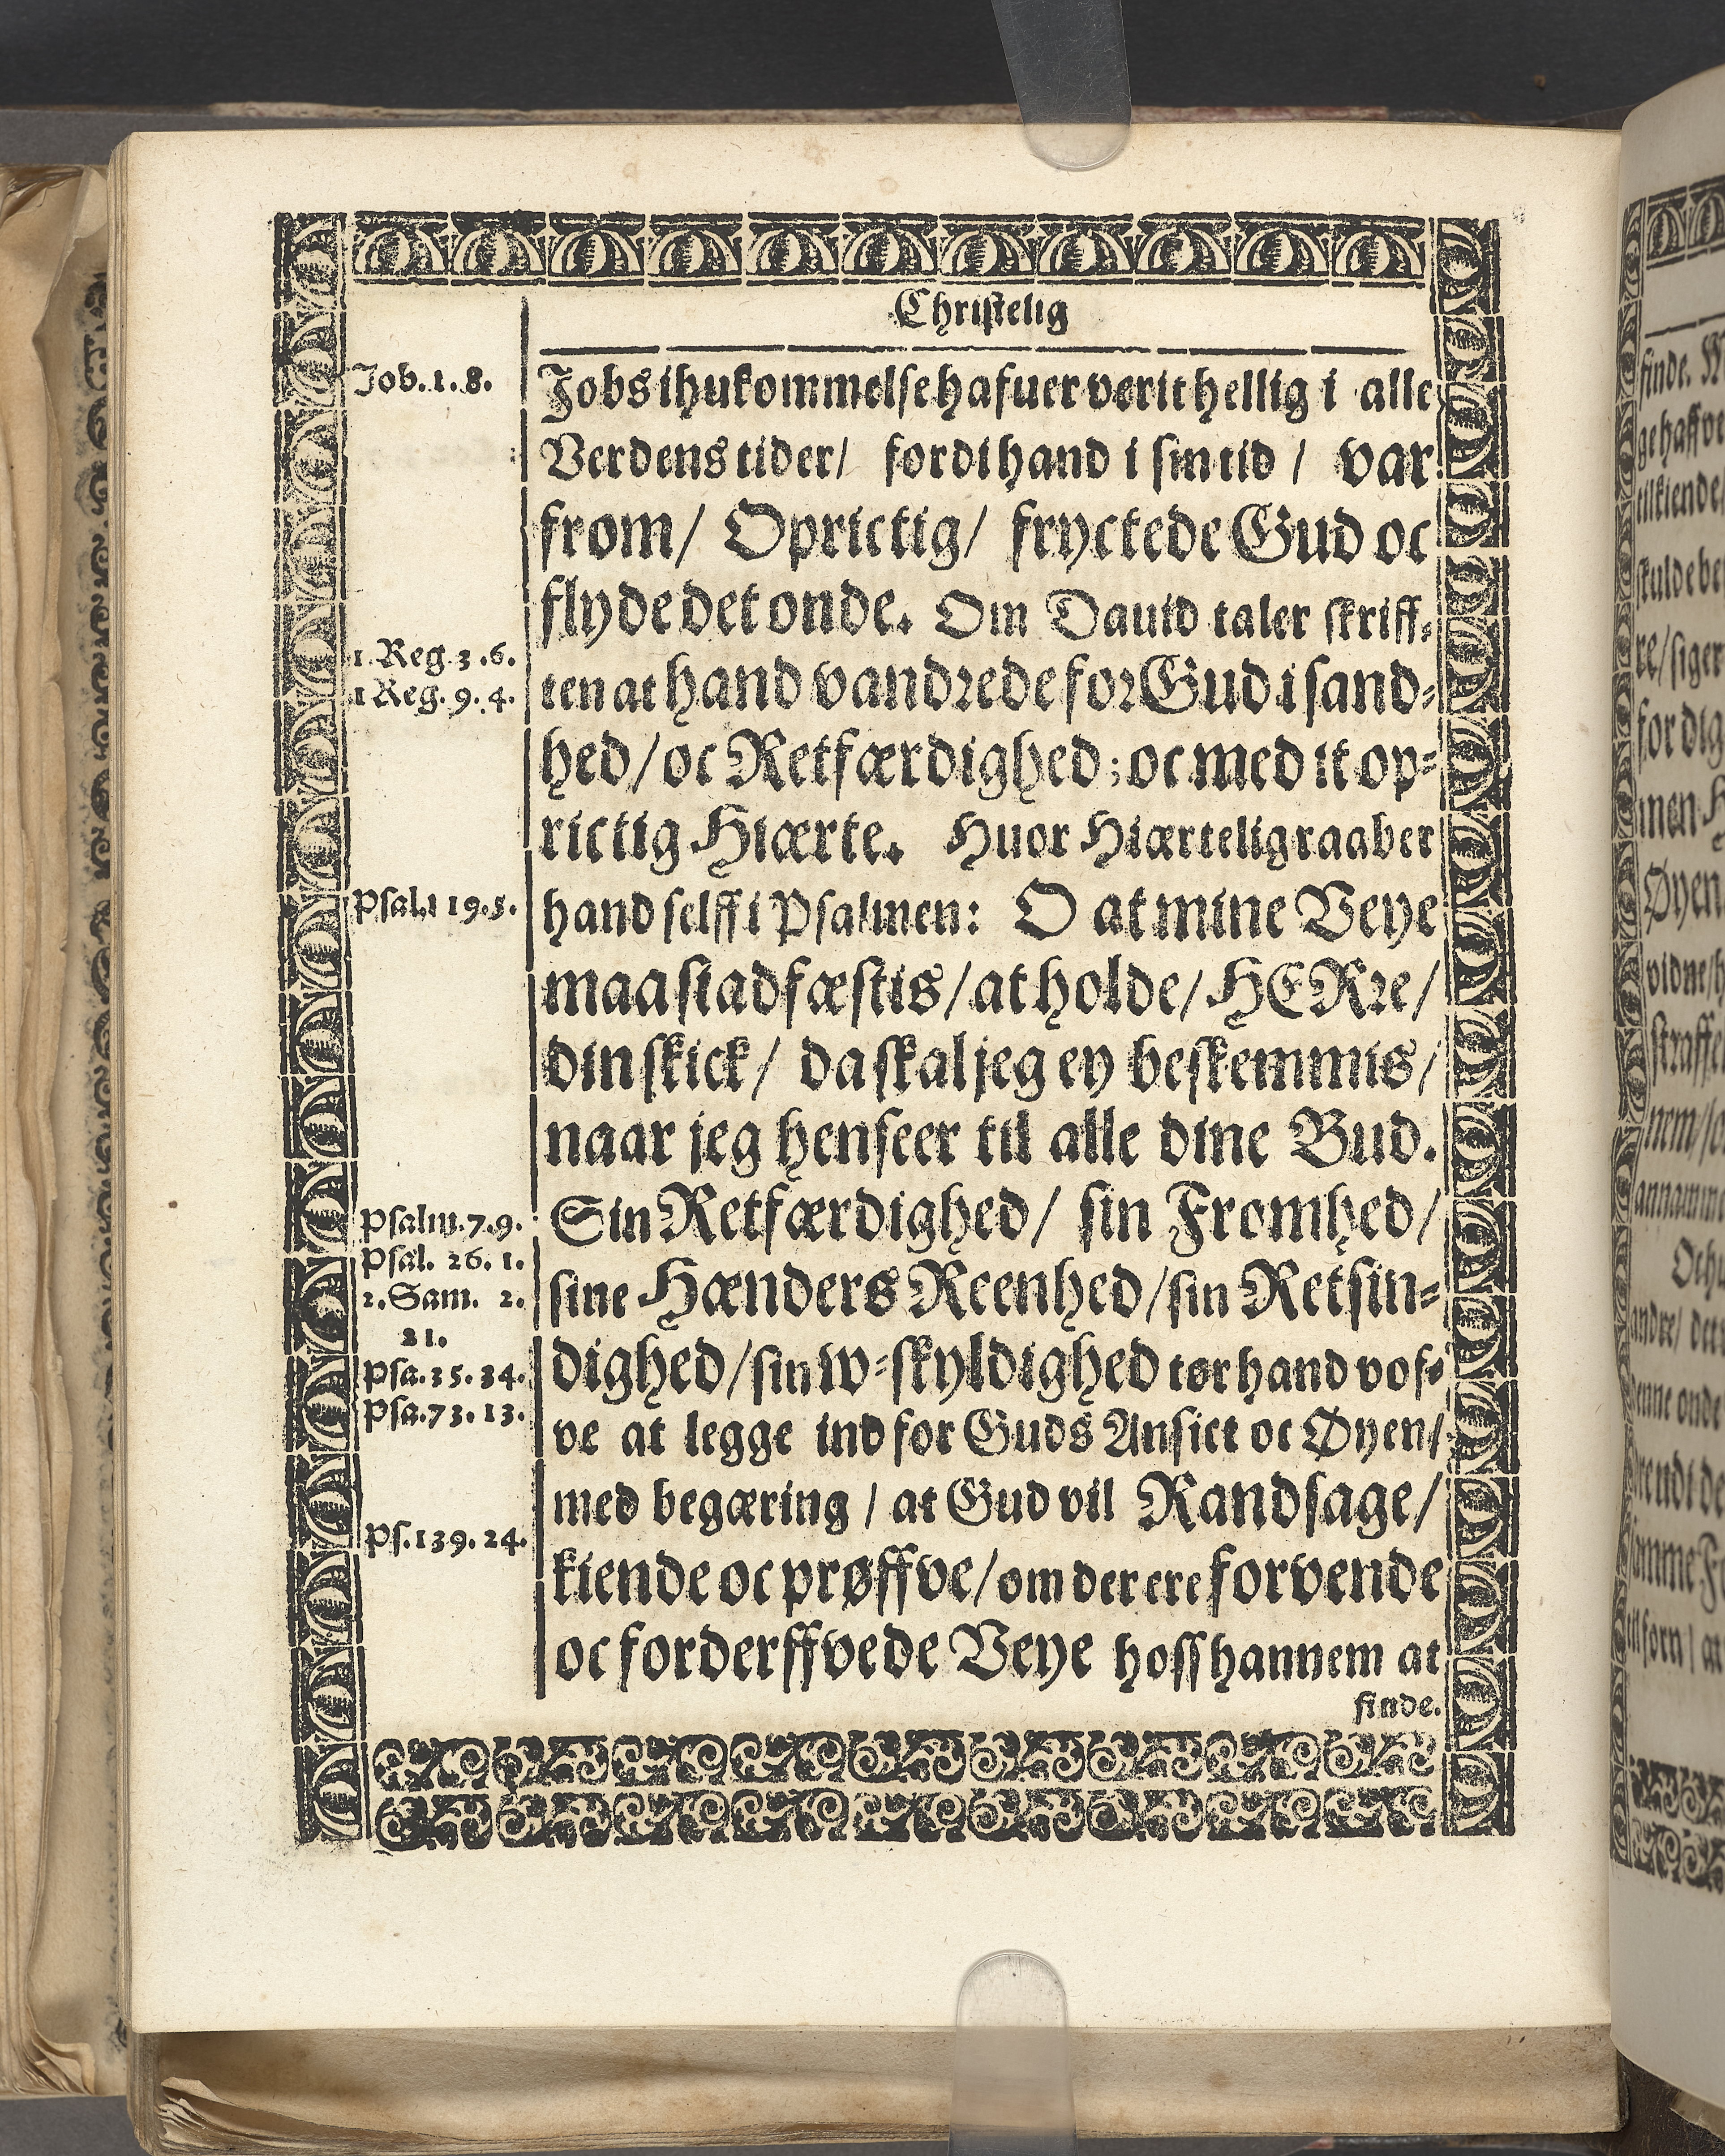 Christelig
Job. 1. 8.
Jobs ihukommelse hafuer verit hellig i alle
Verdens tider/ fordi hand i sin tid / var
from/ Oprictig/ fryctede Gud oc
flyde det onde. Om Dauid taler skriff-
1. Reg. 3. 6.
1 Reg. 9. 4.
ten at hand vandrede for Gud i sand-
hed/ oc Retfærdighed; oc med it op-
rictig Hiærte. Huor Hiærtelig raaber
Psal. 119. 5.
hand selff i Psalmen: O at mine Veye
maa stadfæstis/ at holde/ HERre/
din skick/ da skal jeg ey beskemmis/
naar jeg henseer til alle dine Bud.
Psalm. 7. 9.
Psal. 26. 1.
2. Sam. 2.
21.
Psa. 35. 24.
Psa. 73. 13.
Sin Retfærdighed/ sin Fromhed/
sine Hænders Reenhed/ sin Retsin-
dighed/ sin W-skyldighed tør hand vof-
ve at legge ind for Guds Ansict oc Øyen/
med begæring / at Gud vil Randsage/
Ps. 139. 24.
kiende oc prøffve/ om der ere forvende
oc forderffvede Veye hoss hannem at
finde.